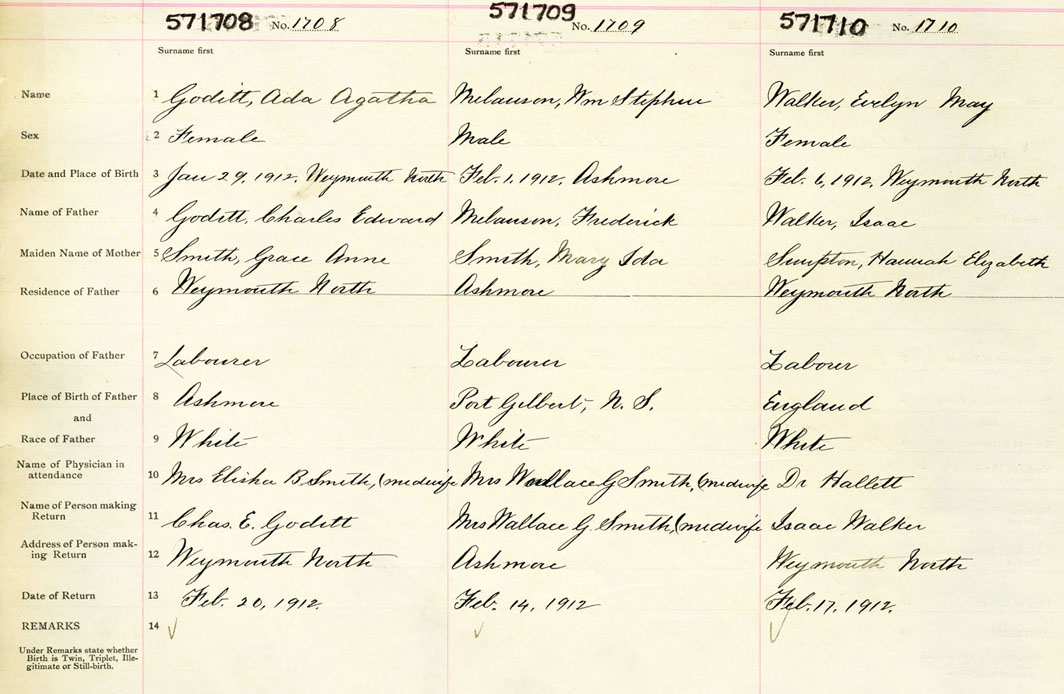 571708 No. 1708 571709 No. 1709 571710 No. 1710
Surname first Surname first Surname first
Name 1 Goditt, Ada Agatha Melanson, Wm Stephen Walker, Evelyn May
Sex 2 Female Male Female
Date and Place of Birth 3 Jan 29, 1912. Weymouth North Feb. 1, 1912, Ashmore Feb. 6, 1912, Weymouth North
Name of Father 4 Goditt, Charles Edward Melanson, Frederick Walker, Isaac
Maiden Name of Mother 5 Smith, Grace Anne Smith, Mary Ida Simpston, Hannah Elizabeth
Residence of Father 6 Weymouth North Ashmore Weymouth North
Occupation of Father 7 Labourer Labourer Labour
Place of Birth of Father 8 Ashmore Port Gilbert, N. S. England
and
Race of Father 9 White White White
Name of Physician in
attendance 10 Mrs Elisha B Smith, (midwife Mrs Wallace G Smith, (midwife Dr Hallett
Name of Person making
Return 11 Chas. E. Goditt Mrs Wallace G. Smith, (midwife Isaac Walker
Address of Person mak-
ing Return 12 Weymouth North Ashmore Weymouth North
Date of Return 13 Feb. 20, 1912. Feb. 14, 1912 Feb. 17, 1912.
REMARKS 14
Under Remarks state whether
Birth is Twin, Triplet, Ille-
gitimate or Still-birth.